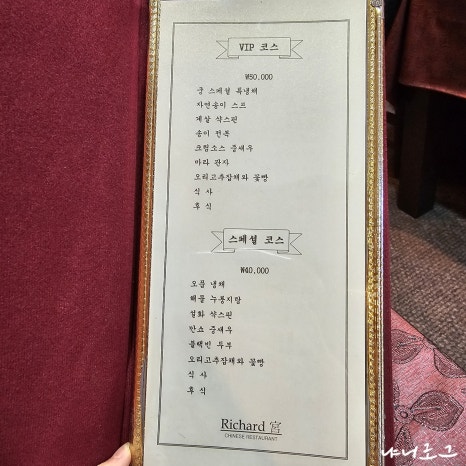 VIP 코스
₩50,000
궁 스페셜 특냉채
자연송이 스프
게살 샥스핀
송이 전복
크림소스 중새우
마라 관자
오리고추잡채와 꽃빵
식 사
후 식
스페셜 코스
₩40,000
오품 냉채
해물 누룽지탕
설화 샥스핀
깐쇼 중새우
블랙빈 두부
오리고추잡채와 꽃빵
식 사
후 식
Richard 宮
CHINESE RESTAURANT
냐니로그